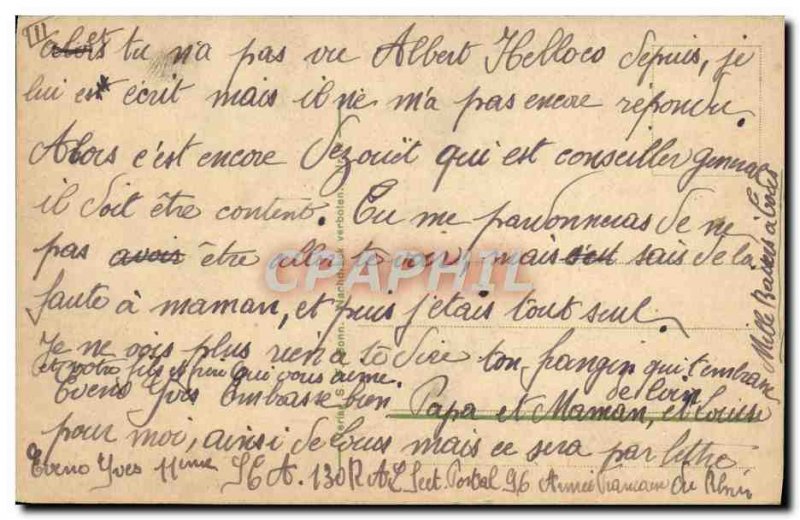 III
alors et tu n'a pas vu Albert Helloco depuis, je
lui est écrit mais il ne m'a pas encore répondu.
Alors c'est encore Dezouët qui est conseiller general
il doit être content. Tu me pardonneras de ne
pas avois être allé te voir, mais c'est sais de la
faute à maman, et puis j'étais tout seul.
Je ne vois plus rien a te dire ton frangin qui t'embrasse
de loin
et votre fils et frère qui vous aime.
Eveno Yves Embrasse bien Papa et Maman, et Louise
pour moi, ainsi de tous mais ce sera par lettre
Eveno Yves 11eme S.C.A. 130 R.A.L Sect. Postal 96 Armée Francaise du Rhin
Mille Baisers à tous
Nachdruck verboten.
CPAPHIL